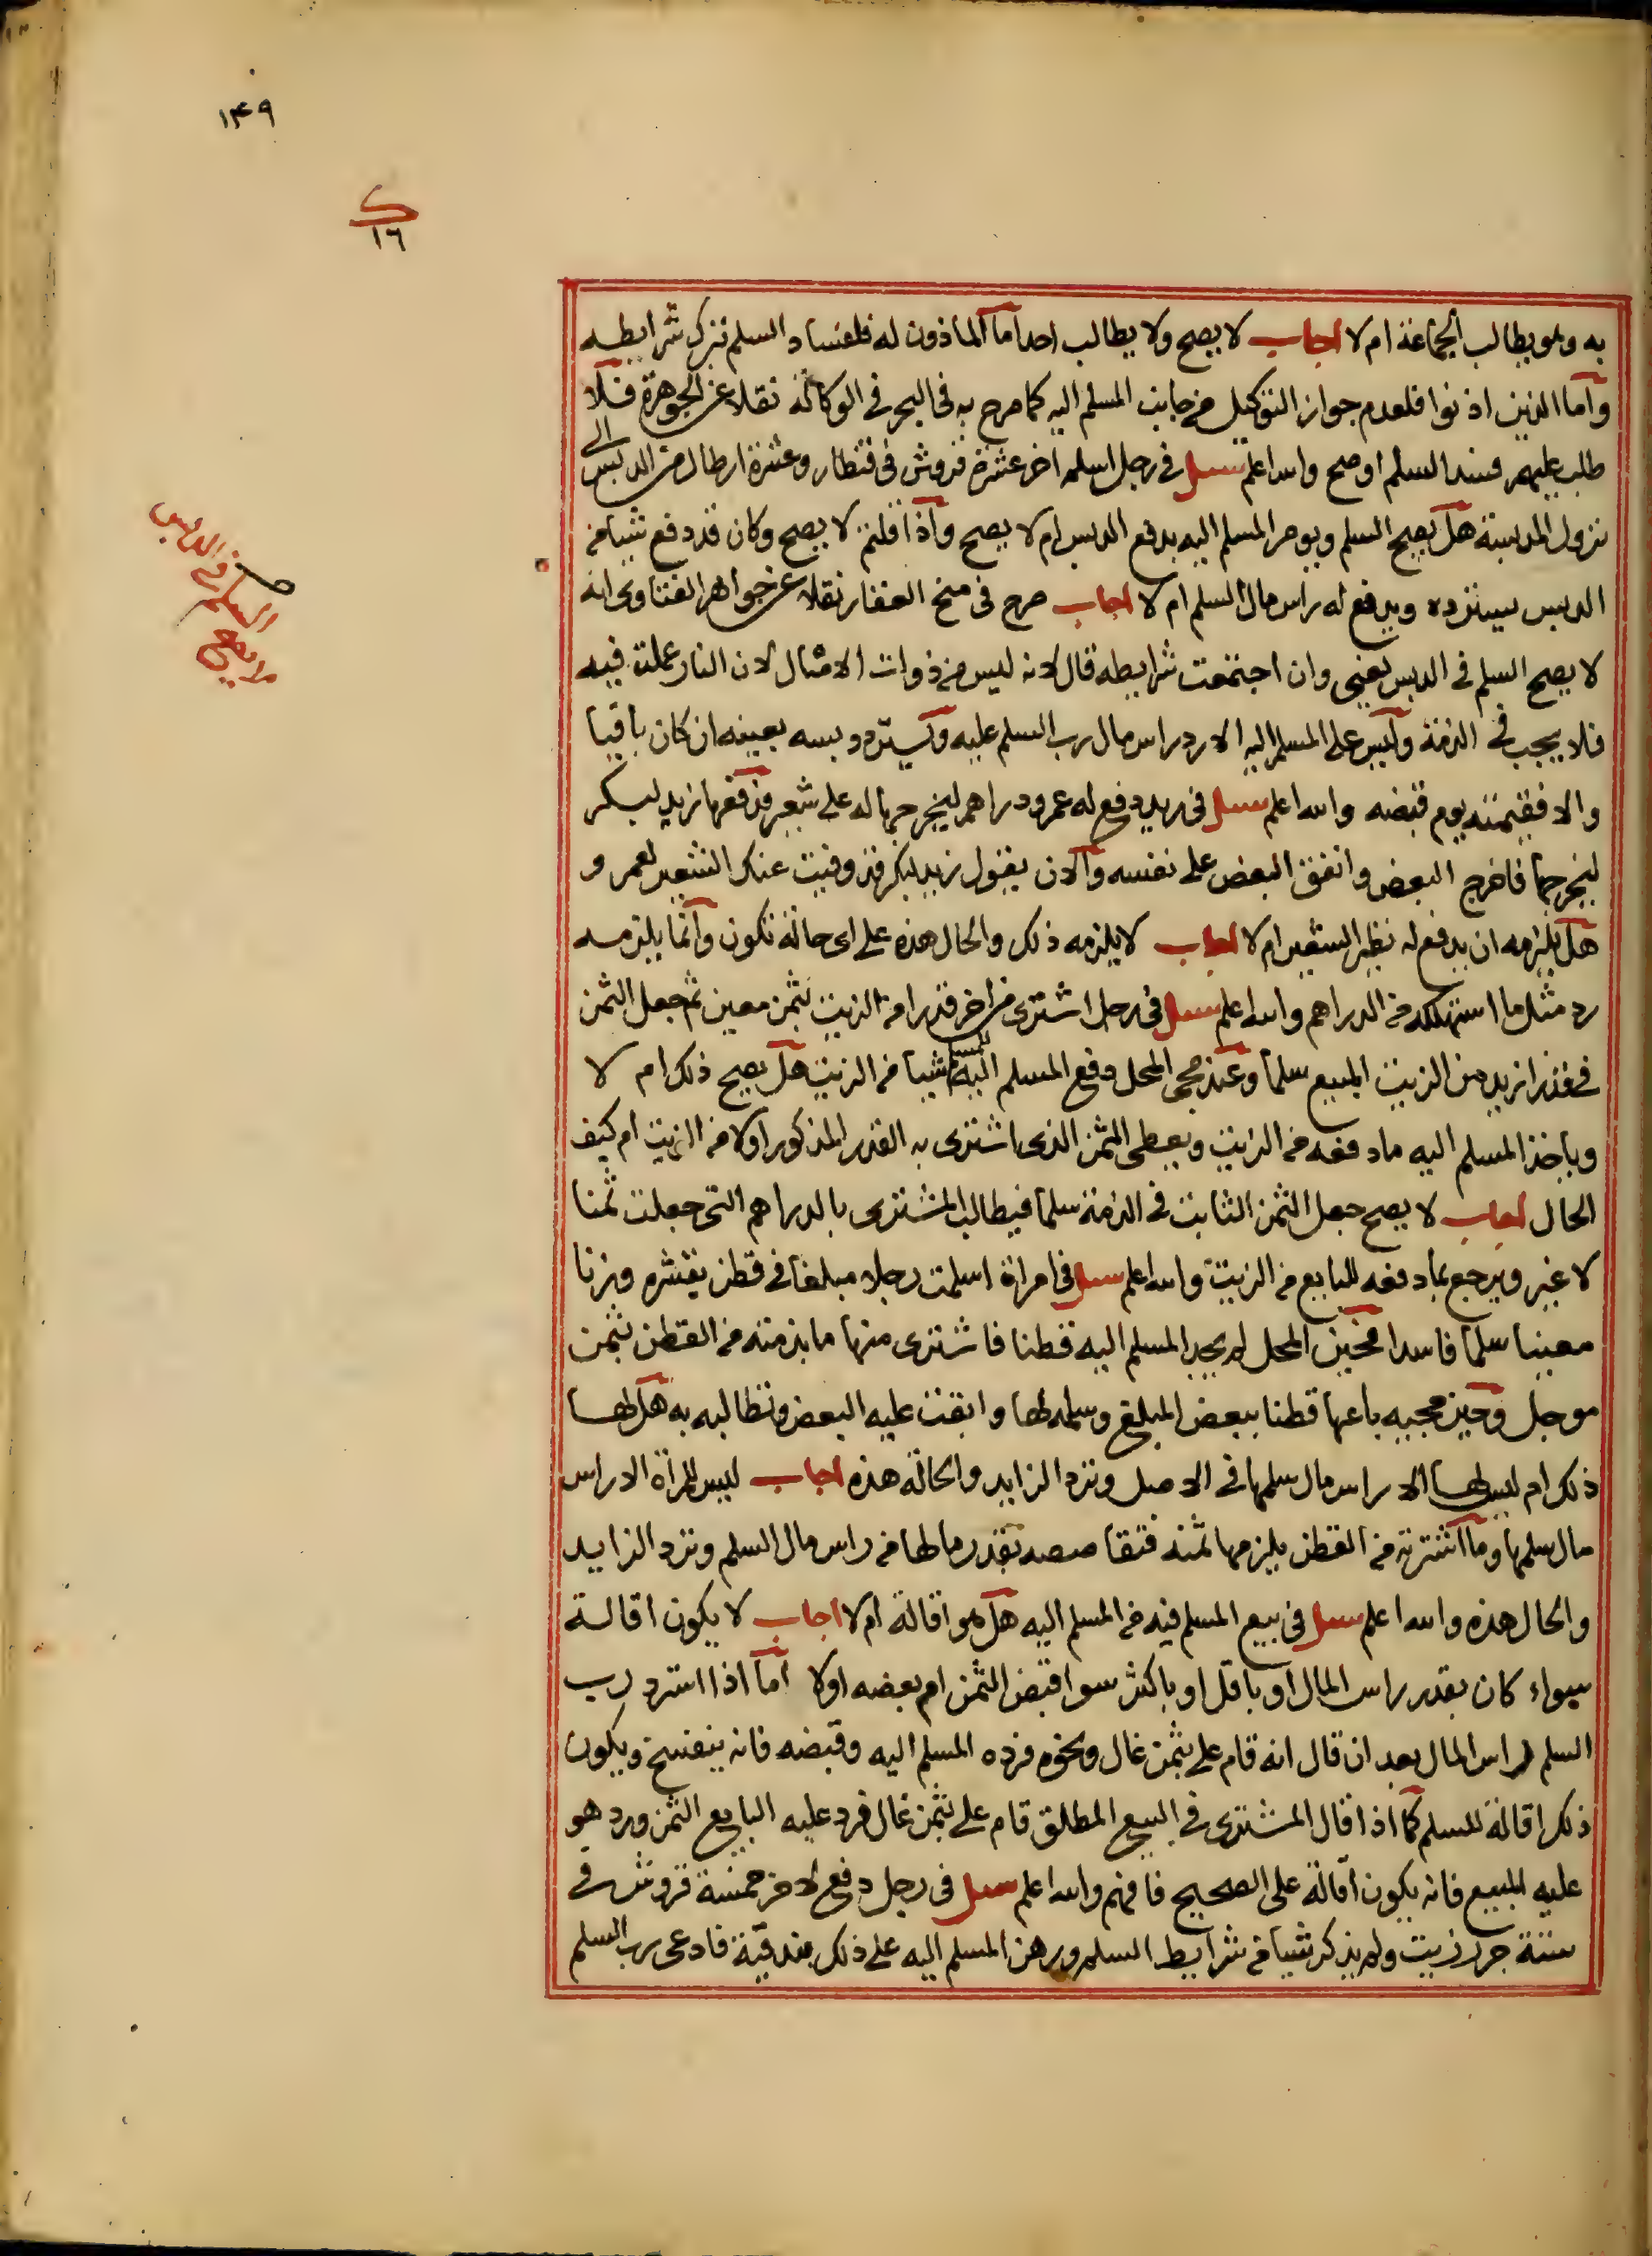 ١٤٩
ك
١٦
به وهو يطالب الجماعة ام لا اجاب لا يصح ولا يطالب احدا اما الماذون له فلفساد السلم بترك شرايطه
واما الذين اذنوا فلعدم جواز التوكيل من جانب المسلم اليه كما صرح به فى البحر فى الوكالة نقلا عن الجوهرة فلا
طلب عليهم فسد السلم او صح والله اعلم سىل فى رجل اسلم اخر عشرة قروش فى قنطار وعشرة ارطال من الدبس الى
نزول المدبسة هل يصح السلم ويومر المسلم اليه بدفع الدبس ام لا يصح واذا قلتم لا يصح وكان قد دفع شيا من
الدبس يسترده ويدفع له راس مال السلم ام لا اجاب صرح فى منح الغفار نقلا عن جواهر الفتاوى انه
لا يصح السلم فى الدبس يعنى وان اجتمعت شرايطه قال لانه ليس من ذوات الامثال لان النار عملت فيه
فلا يجب فى الذمة وليس على المسلم اليه الا رد راس مال رب السلم عليه ويسترد دبسه بعينه ان كان باقيا
والا فقيمته يوم قبضه والله اعلم سىل فى زيد دفع له عمرو دراهم ليخرجها له على شعير فدفعها زيد لبكر
ليخرجها فاخرج البعض وانفق البعض على نفسه والان يقول زيد لبكر قد وفيت عنك الشعير لعمرو
هل يلزمه ان يدفع له نظير الشعير ام لا اجاب لا يلزمه ذلك والحال هذه على اى حالة تكون وانما يلزمه
رد مثل ما استهلكه من الدراهم والله اعلم سىل فى رجل اشترى من اخر قدرا من الزيت بثمن معين ثم جعل الثمن
فى قدر ازيد من الزيت المبيع سلما وعند مجى المحل دفع المسلم اليه للمسلم شيا من الزيت هل يصح ذلك ام لا
وياخذ المسلم اليه ما دفعه من الزيت ويعطى الثمن الذى اشترى به القدر المذكور اولا من الزيت ام كيف
الحال اجاب لا يصح جعل الثمن الثابت فى الذمة سلما فيطالب المشترى بالدراهم التى جعلت ثمنا
لا غير ويرجع بما دفعه للبايع من الزيت والله اعلم سىل فى امراة اسلمت رجلا مبلغا فى قطن بقشره وزنا
معينا سلما فاسدا فحين المحل لم يجد المسلم اليه قطنا فاشترى منها ما بذمته من القطن بثمن
موجل وحين مجيه باعها قطنا ببعض المبلغ وسلمه لها وابقت عليه البعض وتطالبه به هل لها
ذلك ام ليس لها الا راس مال سلمها فى الاصل وترد الزايد والحالة هذه اجاب ليس للمراة الا راس
مال سلمها وما اشترته من القطن يلزمها ثمنه فتقاصصه بقدر ما لها من راس مال السلم وترد الزايد
والحال هذه والله اعلم سىل فى بيع المسلم فيه من المسلم اليه هل هو اقالة ام لا اجاب لا يكون اقالة
سواء كان بقدر راس المال او باقل او باكثر سوا قبض الثمن ام بعضه اولا اما اذا استرد رب
السلم راس المال بعد ان قال انه قام على بثمن غال ونحوه فرده المسلم اليه وقبضه فانه ينفسخ ويكون
ذلك اقالة للسلم كما اذا قال المشترى فى البيع المطلق قام على بثمن غال فرد عليه البايع الثمن ورد هو
عليه المبيع فانه يكون اقالة على الصحيح فافهم والله اعلم سىل فى رجل دفع لاخر خمسة قروش فى
ستة جرر زيت ولم يذكر شيا من شرايط السلم ورهن المسلم اليه على ذلك بندقية فادعى رب السلم
السلم فى الدبس
لا يصح